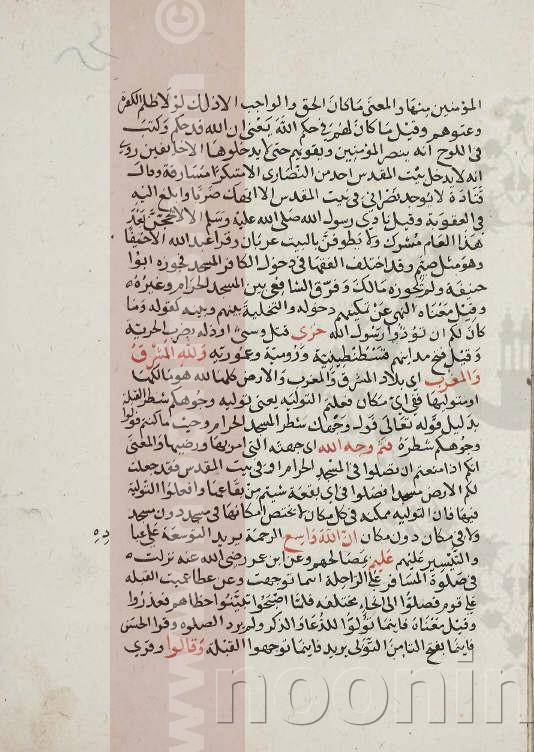 المؤمنين منها والمعنى ما كان الحق والواجب الا ذلك لولا ظلم الكفرة
وعتوهم وقيل ما كان لهم في حكم الله يعني ان الله قد حكم وكتب
في اللوح انه ينصر المؤمنين ويقويهم حتى لا يدخلوها الا خائفين روي
انه لا يدخل بيت المقدس احد من النصارى الا متنكرا مسارقة وقال
قتادة لا يوجد نصراني في بيت المقدس الا انهك ضربا وابلغ اليه
في العقوبة وقيل نادى رسول الله صلى الله عليه وسلم الا لا يحجن بعد
هذا العام مشرك ولا يطوفن بالبيت عريان وقرا عبد الله الا خيفا
وهو مثل صيم وقد اختلف الفقها في دخول الكافر المسجد فجوزه ابو
حنيفة ولم يجوزه مالك وفرق الشافعي بين المسجد الحرام وغيره
وقيل معناه النهي عن تمكينهم من دخوله والتخلية بينهم وبينه كقوله وما
كان لكم ان تؤذوا رسول الله خزي قتل وسبي او ذلة بضرب الجزية
وقيل فتح مدائنهم قسطنطينية ورومية وعمورية ولله المشرق
والمغرب اي بلاد المشرق والمغرب والارض كلها لله هو مالكها
ومتوليها ففي اي مكان فعلتم التولية يعني تولية وجوهكم شطر القبلة
بدليل قوله تعالى فول وجهك شطر المسجد الحرام وحيث ما كنتم فولوا
وجوهكم شطره فثم وجه الله اي جهته التي امر بها ورضيها والمعنى
انكم اذا منعتم ان تصلوا في المسجد الحرام او في بيت المقدس فقد جعلت
لكم الارض مسجدا فصلوا في اي بقعة شئتم من بقاعها وافعلوا التولية
فيها فان التولية ممكنة في كل مكان لا يختص امكانها في مسجد دون مسجد
ولا في مكان دون مكان ان الله واسع الرحمة يريد التوسعة على عباده
والتيسير عليهم عليم بمصالحهم وعن ابن عمر رضي الله عنه نزلت
في صلوة المسافر على الراحلة اينما توجهت وعن عطا عميت القبلة
على قوم فصلوا الى انحاء مختلفة فلما اصبحوا تبينوا خطاهم فعذروا
وقيل معناه فاينما تولوا للدعا والذكر ولم يرد الصلوة وقرا الحسن
فاينما تولوا بفتح التا من التولي يريد فاينما توجهوا القبلة وقالوا وقري
www.noonin
noonin
©